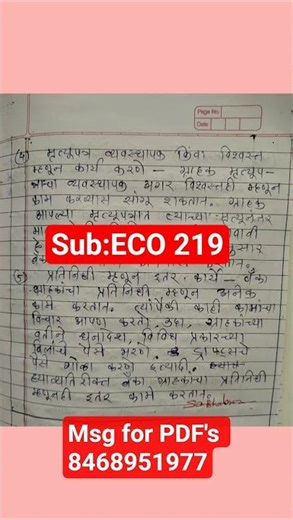 Page No.
Date
(4) मृत्यूपत्र व्यवस्थापक किंवा विश्वस्त
म्हणून कार्य करणे - ग्राहक मृत्यूप-
त्राचा व्यवस्थापक अगर विश्वस्तही म्हणून
काम करण्यास सांगू शकतात. ग्राहक
आपल्या मृत्यूपत्रात त्याच्या मृत्यूनंतर
Sub:ECO 219
प्रतिनिधी म्हणून इतर कार्ये - बँका
ग्राहकांचा प्रतिनिधी म्हणून अनेक
कामे करतात. त्यापैकी काही कामांचा
विचार आपण करतो. उदा. ग्राहकांच्या
वतीने धनादेश, विविध प्रकारच्या
बिलांचे पैसे भरणे.
पैसे गोळा करणे इत्यादी.
ह्याव्यतिरिक्त बँका ग्राहकांचा प्रतिनिधी
म्हणूनही इतर कामे करतात.
Msg for PDF's
8468951977